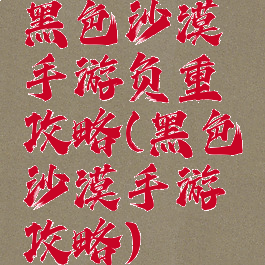 黑色沙漠
手游负重
攻略(黑色
沙漠手游
攻略)